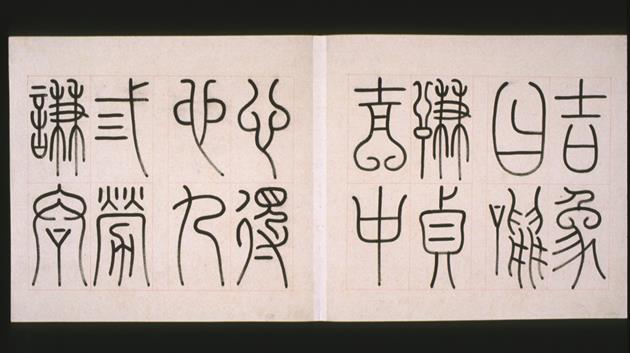 吉象
曰鳴
謙貞
吉中
心得
也九
弎勞
謙君